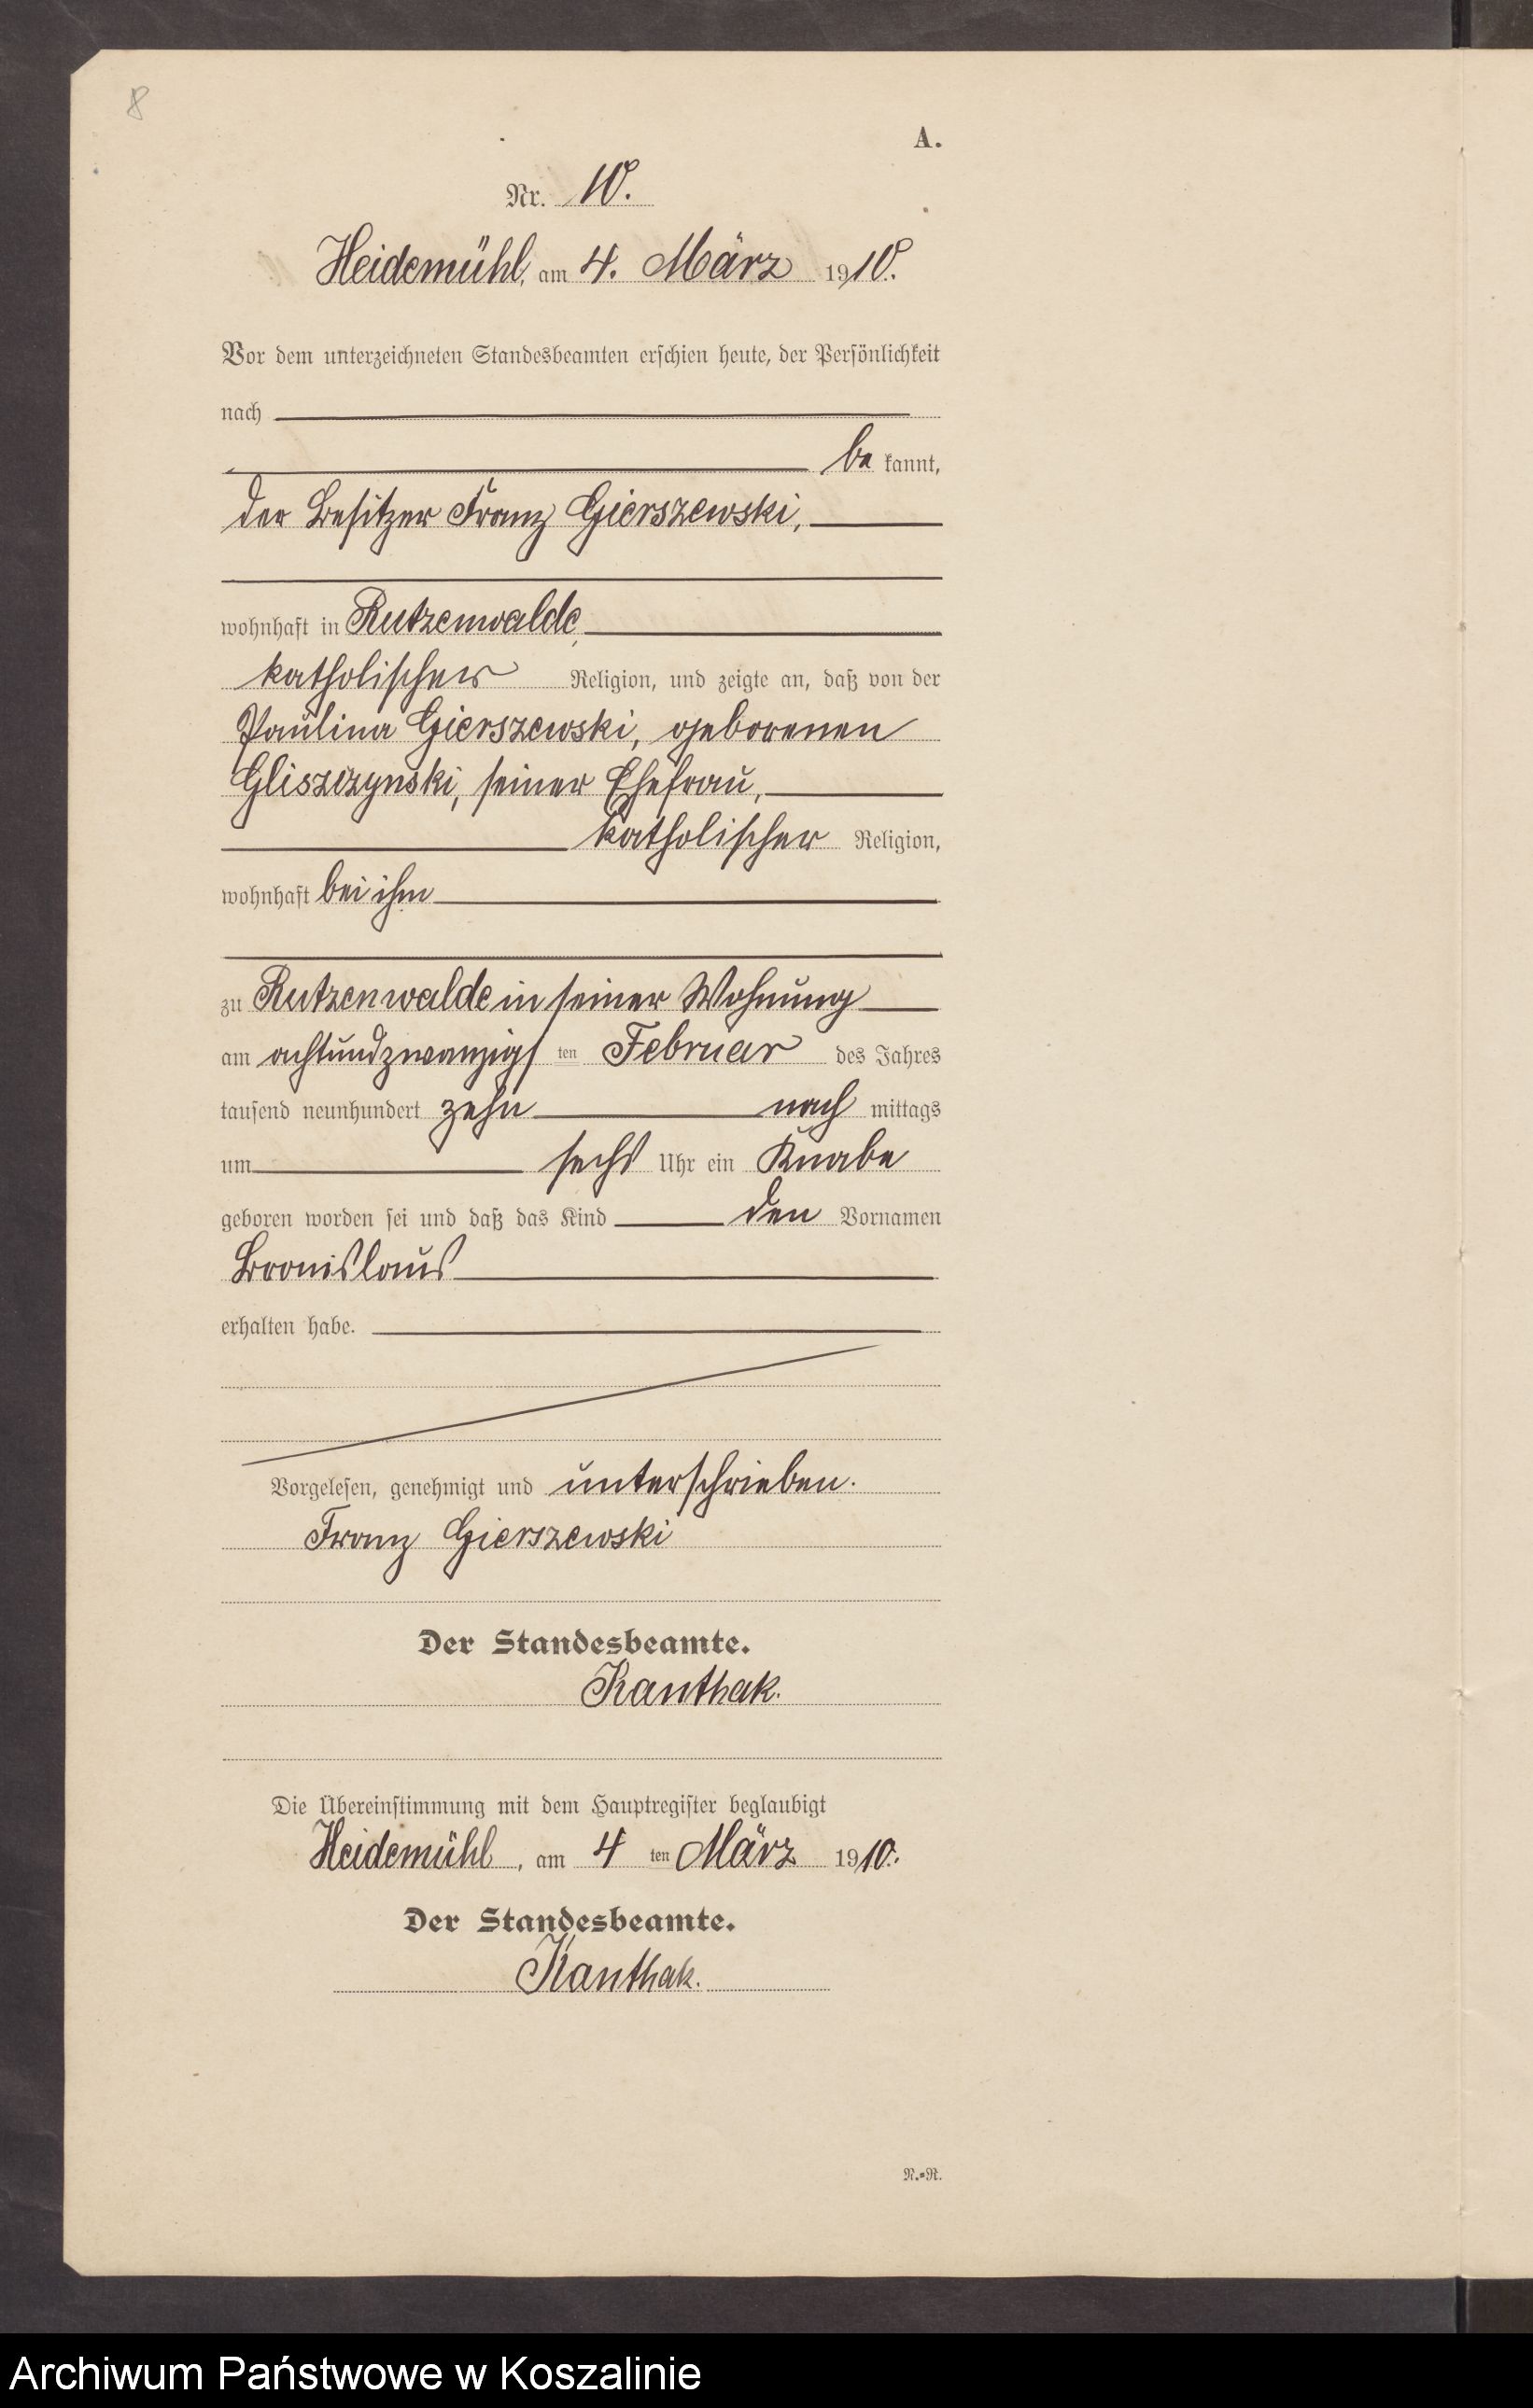 8
A.
Nr. 10.
Heidemühl, am 4. März 1910.
Vor dem unterzeichneten Standesbeamten erschien heute, der Persönlichkeit
nach
be kannt,
der Besitzer Franz Gierszewski,
wohnhaft in Rutzenwalde,
katholischer Religion, und zeigte an, daß von der
Paulina Gierszewski, geborenen
Gliszczynski, seiner Ehefrau,
katholischer Religion,
wohnhaft bei ihm
zu Rutzenwalde in seiner Wohnung
am achtundzwanzigs ten Februar des Jahres
tausend neunhundert zehn nach mittags
um sechs Uhr ein Knabe
geboren worden sei und daß das Kind den Vornamen
Bronislaus
erhalten habe.
Vorgelesen, genehmigt und unterschrieben.
Franz Gierszewski
Der Standesbeamte.
Kanthak.
Die Übereinstimmung mit dem Hauptregister beglaubigt
Heidemühl, am 4 ten März 1910.
Der Standesbeamte.
Kanthak.
N.=R.
Archiwum Państwowe w Koszalinie